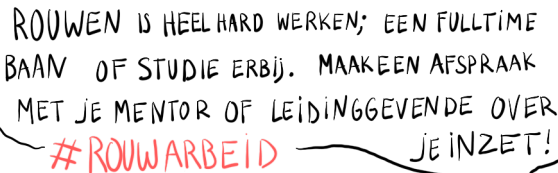 ROUWEN IS HEEL HARD WERKEN; EEN FULLTIME
BAAN OF STUDIE ERBIJ. MAAK EEN AFSPRAAK
MET JE MENTOR OF LEIDINGGEVENDE OVER
#ROUWARBEID JE INZET!